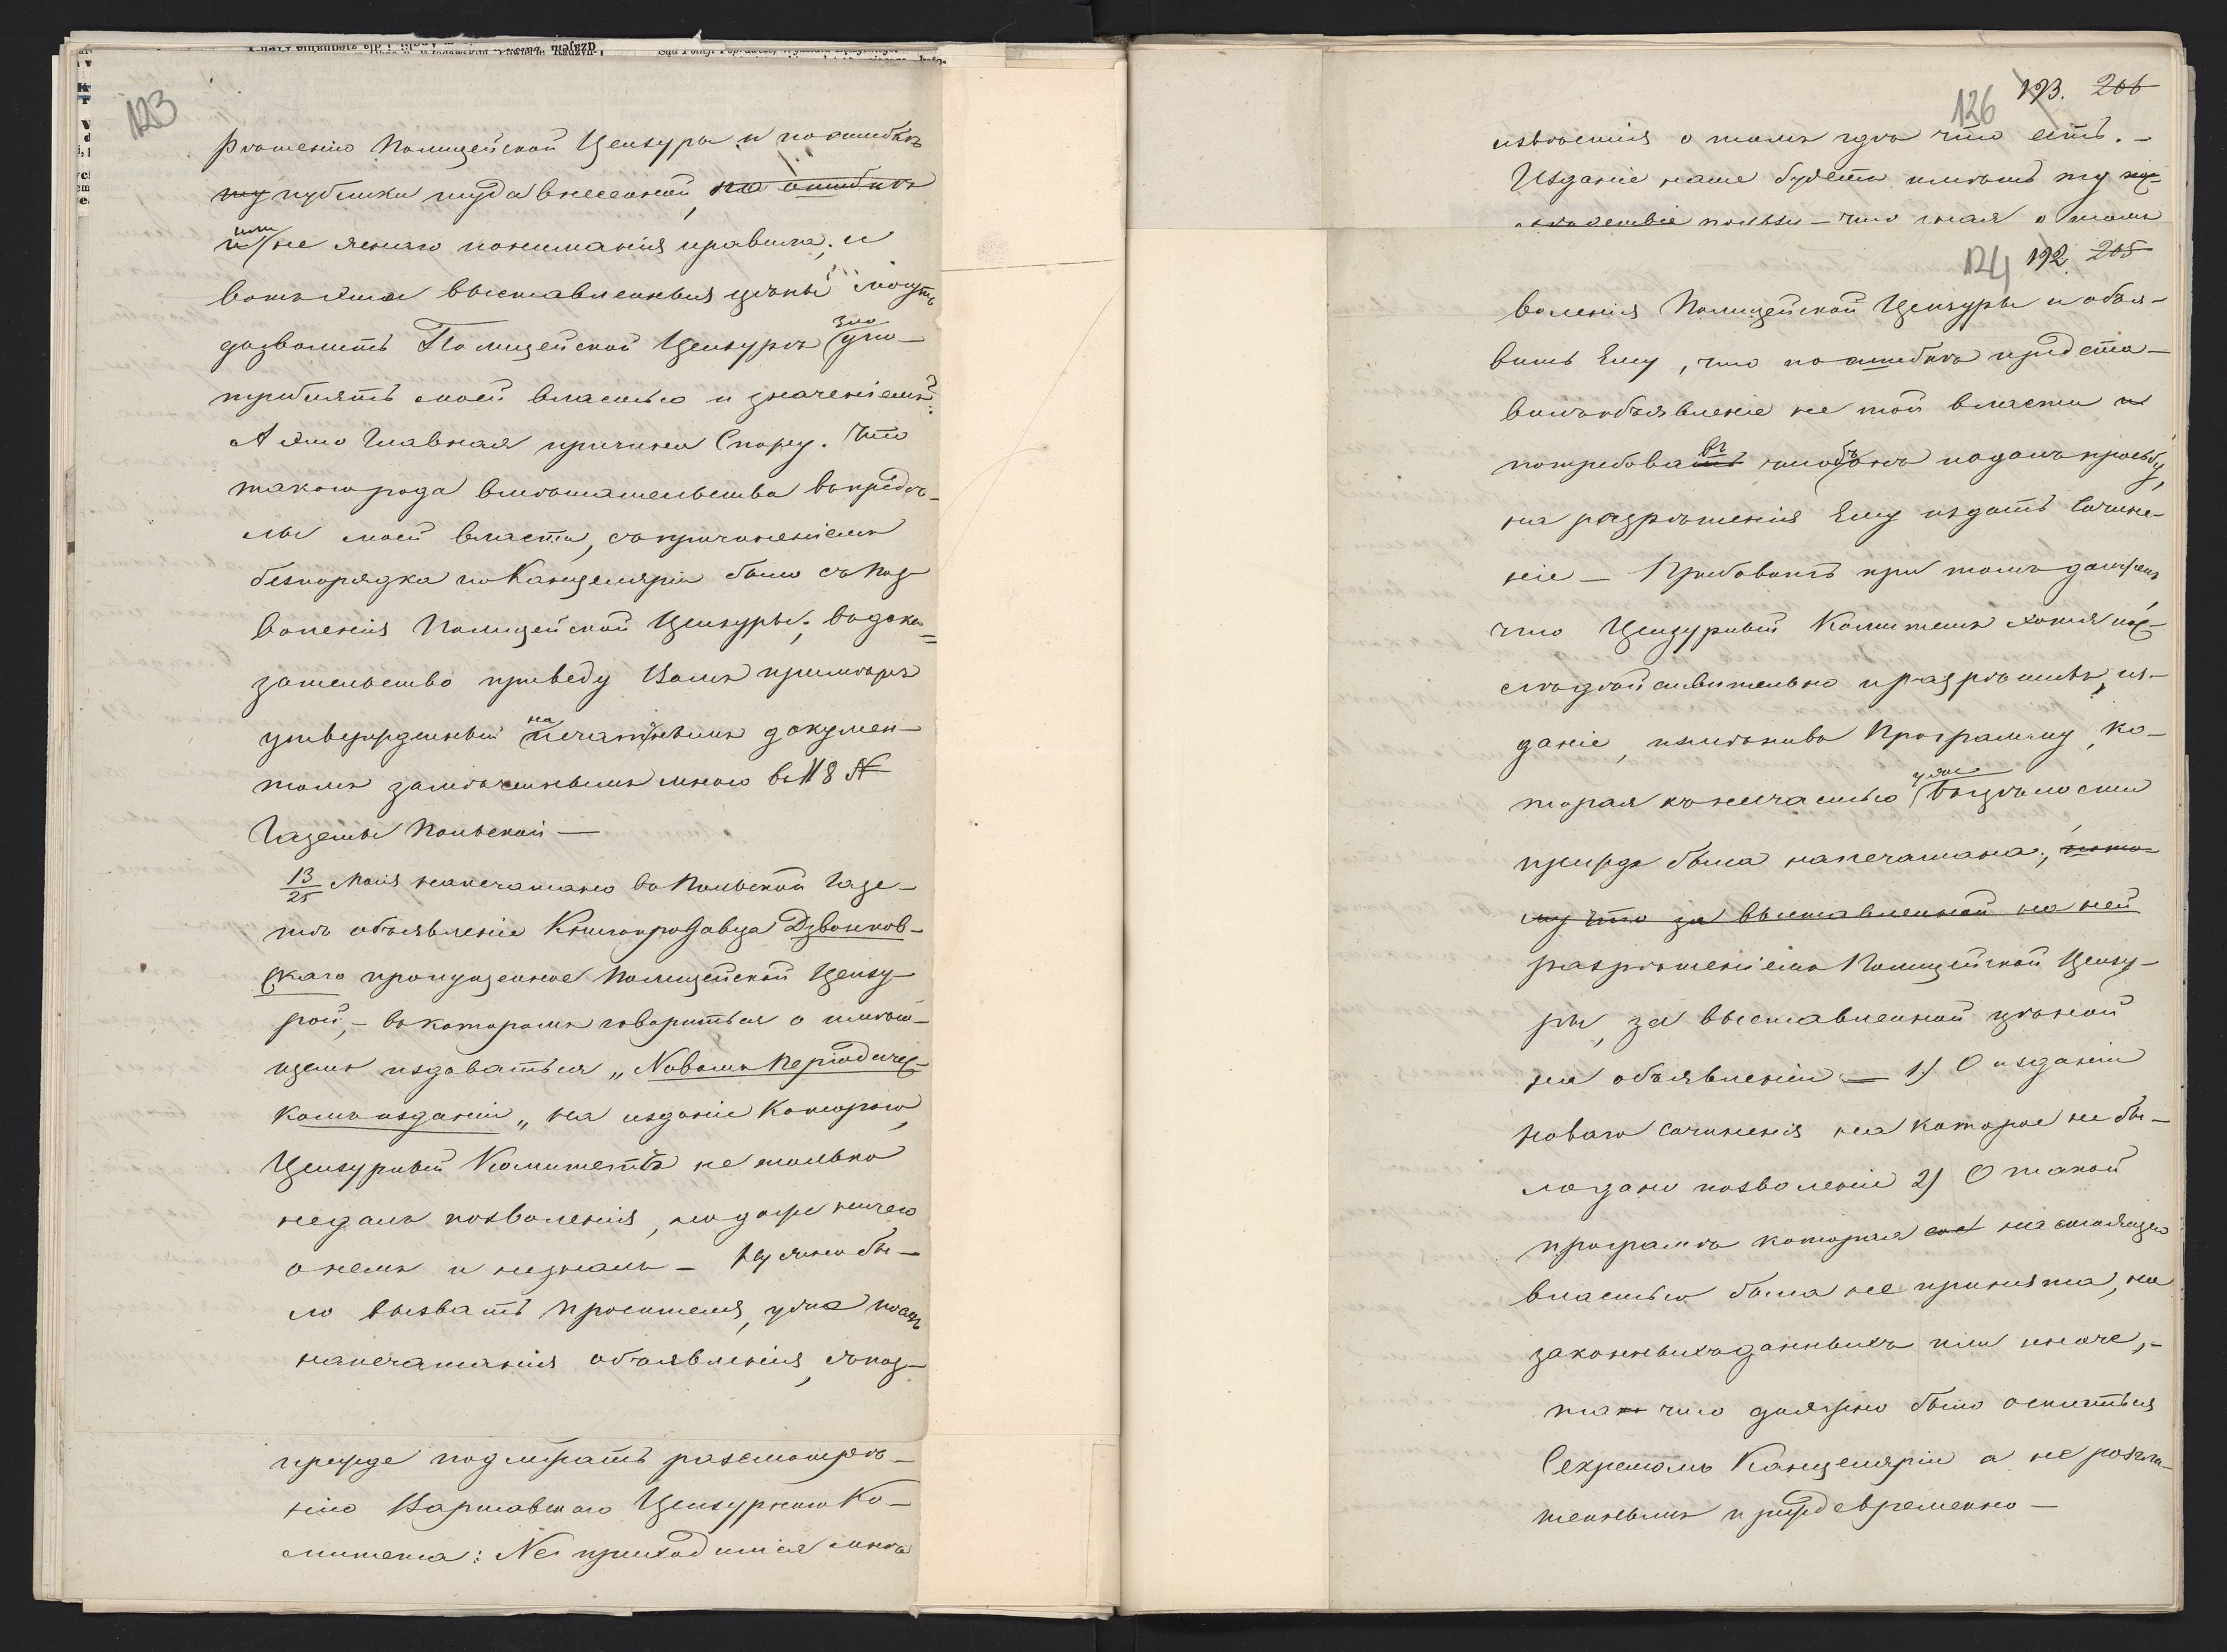 123
рѣшенію Полицейской Цензуры и по ошибкѣ
ту публики туда внесенной, по ошибкѣ
или не яснаго пониманія правила; и
вотъ эти выставленныя цѣны могутъ
дозволить Полицейской Цензурѣ зло
упо-
треблять моей властью и значеніемъ?
А это главная причина Спору. Что
такого рода вмѣшательства въ предѣ-
лы моей власти, съ причиненіемъ
безпорядка по Канцеляріи было съ поз-
воленія Полицейской Цензуры; въ дока=
зательство приведу Вамъ примѣръ
утвержденный на печатнымъ докумен-
томъ замѣченнымъ мною въ 118 №
Газеты Польской —
13/25 Мая напечатано въ Польской Газе-
тѣ объявленіе Книгопродавца Дзвонков-
скаго пропущенное Полицейской Цензу-
рой, - въ которомъ говориться о имѣю-
щемъ издаваться „Новомъ Періодичес-
комъ изданіи„ на изданіе котораго,
Цензурный Комитетъ не только
недалъ позволенія, но даже ничего
о немъ и незналъ — Нужно бы-
ло вызвать просителя, уже послѣ
напечатанія объявленія, съ поз-
прежде подлежать разсмотрѣ-
нію Варшавскаго Цензурнаго Ко-
митета: Не приходится мнѣ
126 193. 206
извѣстія о томъ гдѣ что есть. -
Изданіе наше будетъ имѣть ту
польза - что зная о томъ
124 192. 205
воленія Полицейской Цензуры и объя-
вить Ему, что по ошибкѣ предста-
вилъ объявленіе не той власти и
потребовать чтобъ онъ подалъ просьбу,
на разрѣшенія Ему издать Сочине-
ніе — Прибавить при томъ долженъ,
что Цензурный Комитетъ хотя пос-
лѣдствительно и разрѣшитъ, из-
даніе, измѣнивъ Программу, ко-
торая къ несчастью уже въ цѣлости
прежде была напечатана; пото-
му что за выставленной на ней
разрѣшеніемъ Полицейской Цензу-
ры, за выставленной цѣной
на объявленіи — 1) О изданіи
новаго сочиненія на которое не бы-
ло дано позволеніе 2) О такой
програмѣ которая настоящею
властью была не принята, на
законныхъ данныхъ или иначе, -
такъ что должно было остаться
Секретомъ Канцеляріи а не разгла-
шеннымъ преждевременно —